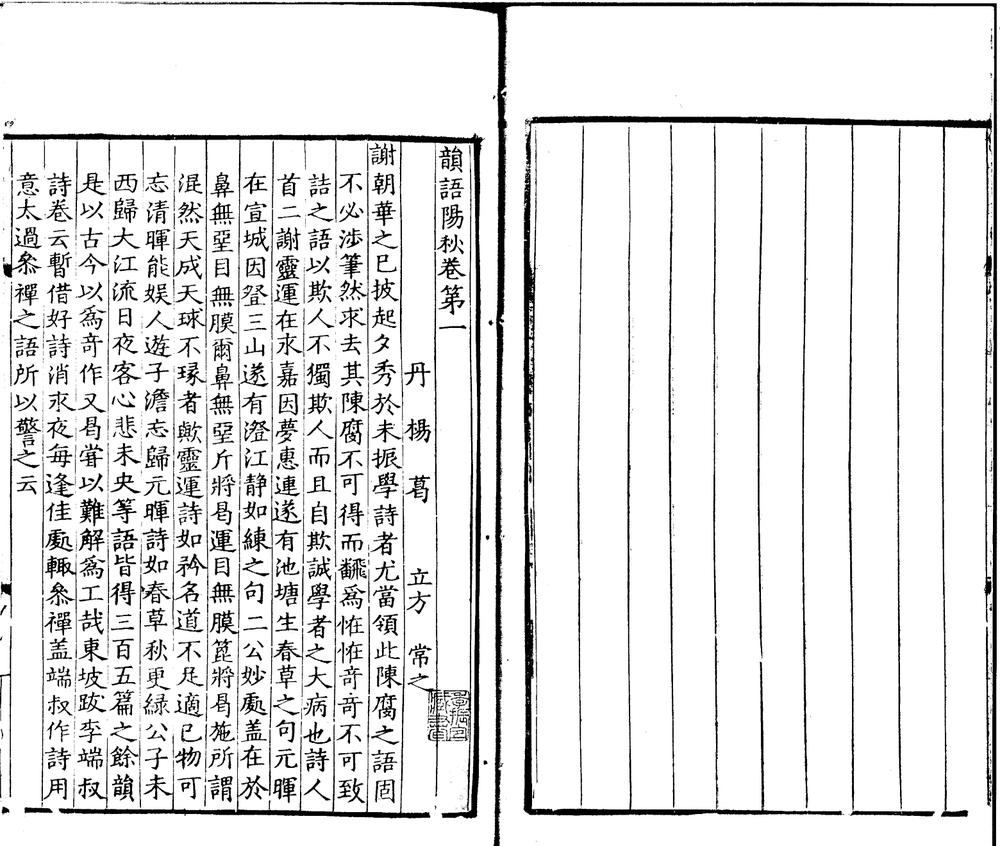 韻語陽秋卷第一
丹楊葛立方常之
謝朝華之已披起夕秀於未振學詩者尤當領此陳腐之語固
不必涉筆然求去其陳腐不可得而飜為恠恠竒竒不可致
詰之語以欺人不獨欺人而且自欺誠學者之大病也詩人
首二謝靈運在永嘉因夢惠連遂有池塘生春草之句元暉
在宣城因登三山遂有澄江静如練之句二公妙處盖在於
鼻無堊目無膜爾鼻無堊斤將曷運目無膜篦將曷施所謂
混然天成天球不琢者歟靈運詩如矜名道不足適己物可
忘清暉能娱人遊子澹忘歸元暉詩如春草秋更緑公子未
西歸大江流日夜客心悲未央等語皆得三百五篇之餘韻
是以古今以為竒作又曷甞以難解為工哉東坡跋李端叔
詩卷云暫借好詩消永夜每逢佳處輙叅禪盖端叔作詩用
意太過叅禪之語所以警之云